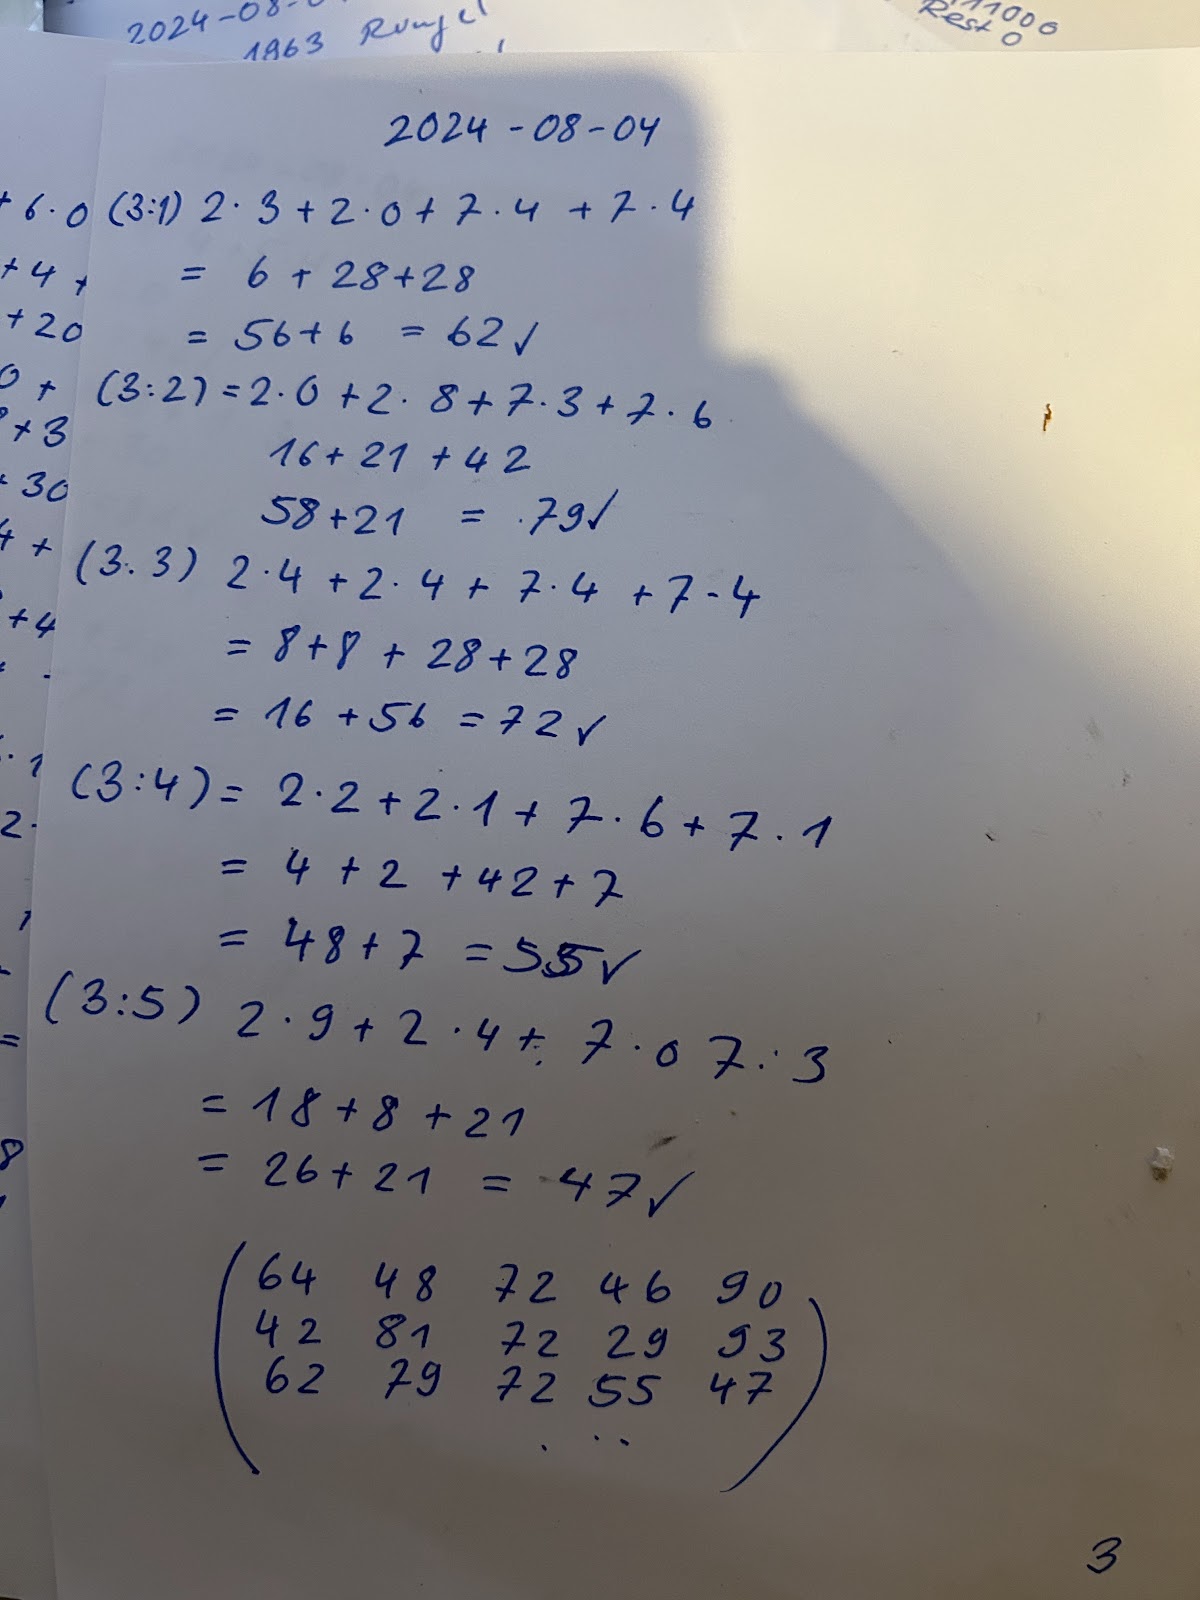 2024-08-0
1963 Runge
11000
Rest 0
2024-08-04
+ 6·0
+ 4 +
+ 20
0 +
+3
30
4 +
+4
· 1
2·
=
8
(3:1) 2·3+2·0+7·4 +7·4
= 6 + 28+28
= 56+6 = 62✓
(3:2) =2·0+2·8+7·3+7·6
16+21+42
58+21 = 79✓
(3.3) 2·4+2·4+7·4 +7-4
= 8+8 + 28+28
= 16 +56 =72✓
(3:4)= 2·2+2·1+7·6+7·1
= 4+2 +42+7
= 48+7 =55✓
(3:5) 2·9+2·4+ 7·0 7·3
= 18+8+21
= 26+21 = 47✓
64 48 72 46 90
42 81 72 29 93
62 79 72 55 47
. . .
3